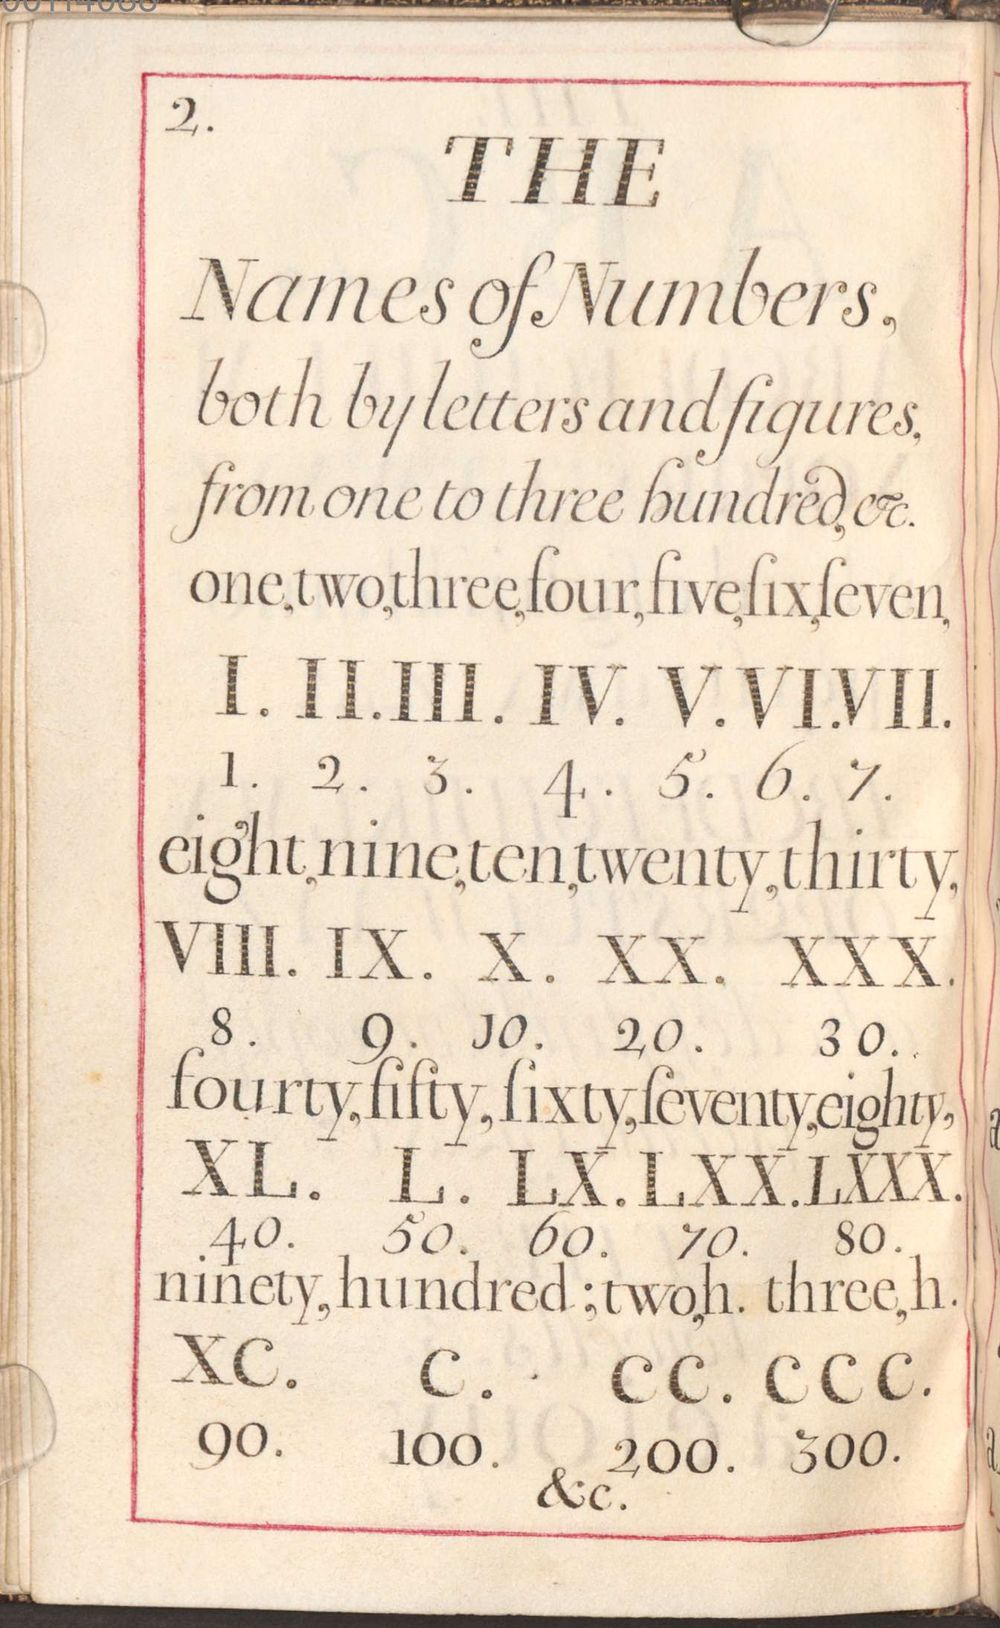 2.
THE
Names of Numbers,
both by letters and figures,
from one to three hundred, &c.
one, two, three, four, five, ſix, ſeven,
I. II. III. IV. V. VI. VII.
1. 2. 3. 4. 5. 6. 7.
eight, nine, ten, twenty, thirty,
VIII. IX. X. XX. XXX.
8. 9. 10. 20. 30.
fourty, fifty, ſixty, ſeventy, eighty,
XL. L. LX. LXX. LXXX.
40. 50. 60. 70. 80.
ninety, hundred; two, h. three, h.
XC. C. CC. CCC.
90. 100. 200. 300.
&c.